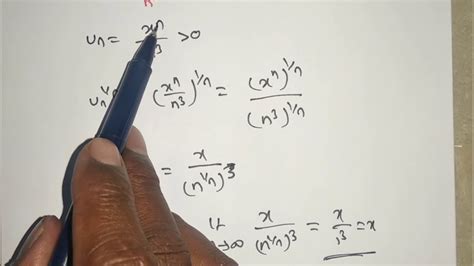 uₙ = xⁿ/ 3 > 0
uₙ^1/n (xⁿ/n³)^1/n = (xⁿ)^1/n / (n³)^1/n
= x/(n^1/n)³
lt →∞ x/(n^1/n)³ = x/1³ = x